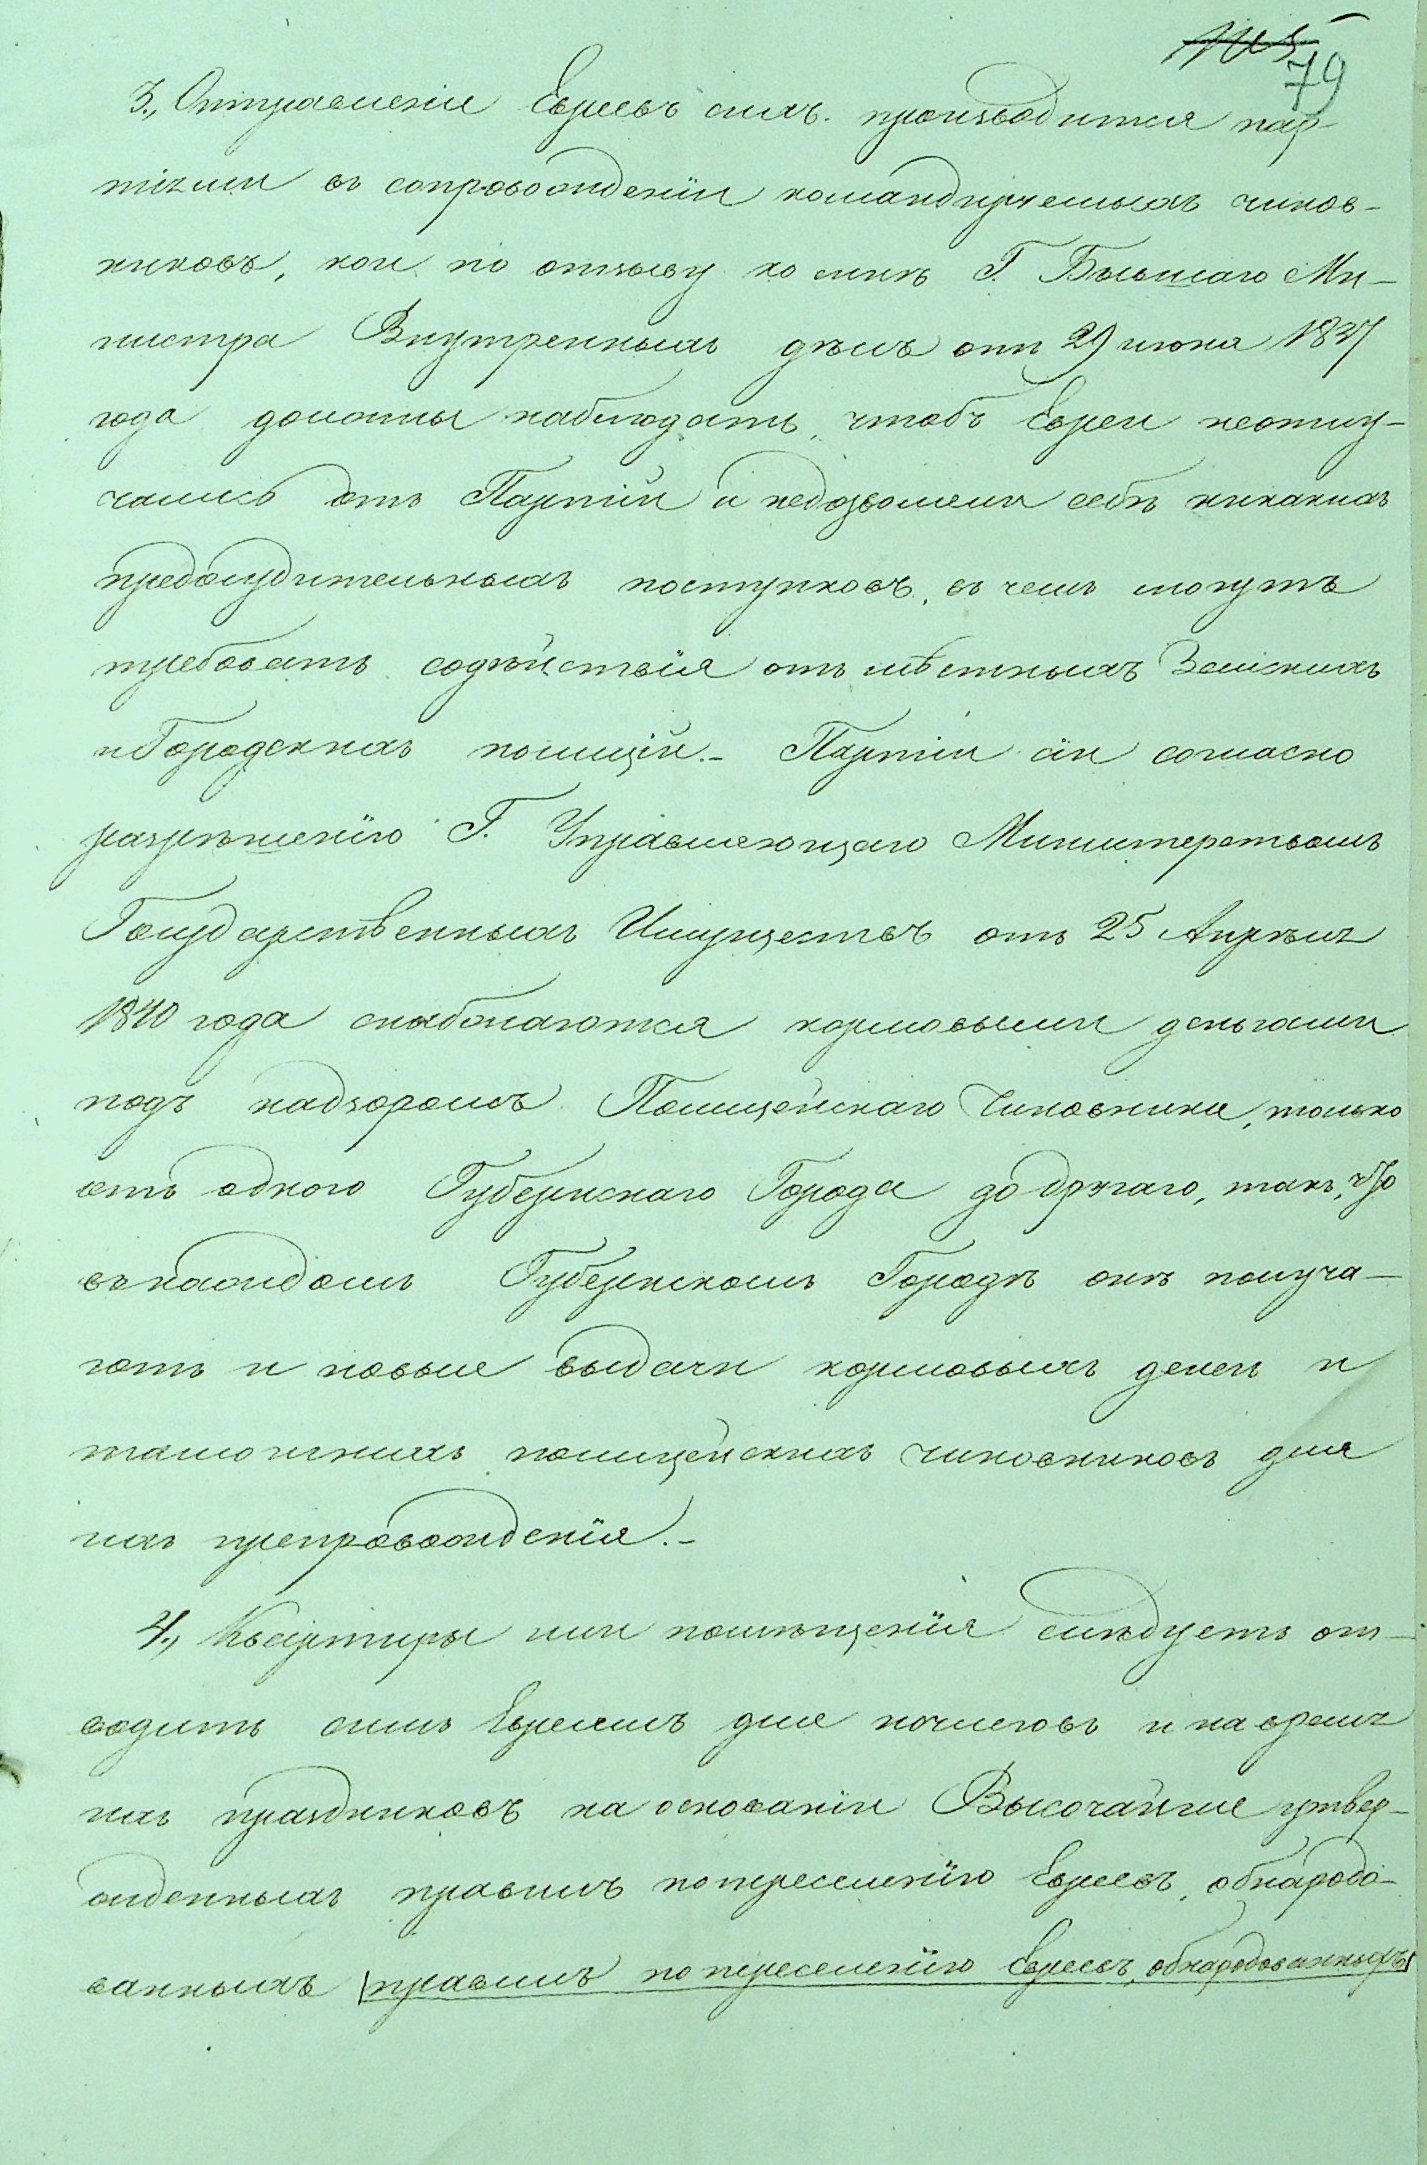 79
3., Отправленіе Евреевъ сихъ производится пар-
тіями въ сопровожденіи командируемыхъ чинов-
никовъ, кои по отзыву ко мнѣ Г. Бывшаго Ми-
нистра Внутреннихъ дѣлъ отъ 29 июня 1837
года должны наблюдать, чтобъ Евреи неотлу-
чались отъ Партіи и недозволяли себѣ никакихъ
предосудительныхъ поступковъ, въ чемъ могутъ
требовать содѣйствія отъ мѣстныхъ Земскихъ
и Городскихъ полицій.- Партіи сіи согласно
разрѣшенію Г. Управляющаго Министерствомъ
Государственныхъ Имуществъ отъ 25 Апрѣля
1840 года снабжаются кормовыми деньгами
подъ надзоромъ Полицейскаго Чиновника, только
отъ одного Губернскаго Города до другаго, такъ, что
въ каждомъ Губернскомъ Городѣ онѣ получа-
ютъ и новые выдачи кормовыхъ денегъ и
тамошнихъ полицейскихъ чиновниковъ для
ихъ препровожденія.-
4., Квартиры или помѣщенія слѣдуетъ от-
водить симъ Евреямъ для ночлеговъ и на время
ихъ праздниковъ на основаніи Высочайше утвер-
жденныхъ правилъ по переселенію Евреевъ, обнародо-
ванныхъ правилъ по переселенію Евреевъ, обнародованныхъ